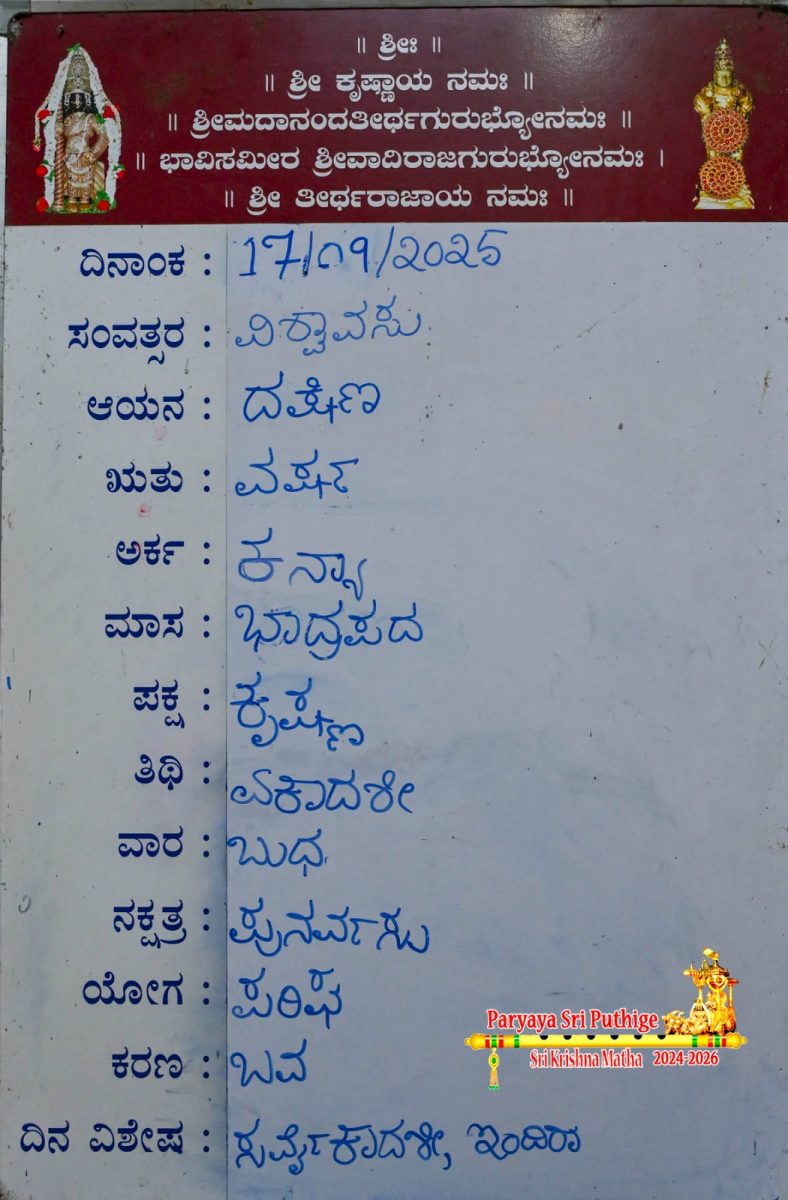 ॥ ಶ್ರೀಃ ॥
॥ ಶ್ರೀ ಕೃಷ್ಣಾಯ ನಮಃ ॥
॥ ಶ್ರೀಮದಾನಂದತೀರ್ಥಗುರುಭ್ಯೋನಮಃ ॥
॥ ಭಾವಿಸಮೀರ ಶ್ರೀವಾದಿರಾಜಗುರುಭ್ಯೋನಮಃ ।
॥ ಶ್ರೀ ತೀರ್ಥರಾಜಾಯ ನಮಃ ॥
ದಿನಾಂಕ : 17/09/2025
ಸಂವತ್ಸರ : ವಿಶ್ವಾವಸು
ಆಯನ : ದಕ್ಷಿಣ
ಋತು : ವರ್ಷ
ಅರ್ಕ : ಕನ್ಯಾ
ಮಾಸ : ಭಾದ್ರಪದ
ಪಕ್ಷ : ಕೃಷ್ಣ
ತಿಥಿ : ಏಕಾದಶೀ
ವಾರ : ಬುಧ
ನಕ್ಷತ್ರ : ಪುನರ್ವಸು
ಯೋಗ : ಪರಿಘ
ಕರಣ : ಬವ
ದಿನ ವಿಶೇಷ : ಸರ್ವೈಕಾದಶೀ, ಇಂದಿರಾ
Paryaya Sri Puthige
Sri Krishna Matha 2024-2026